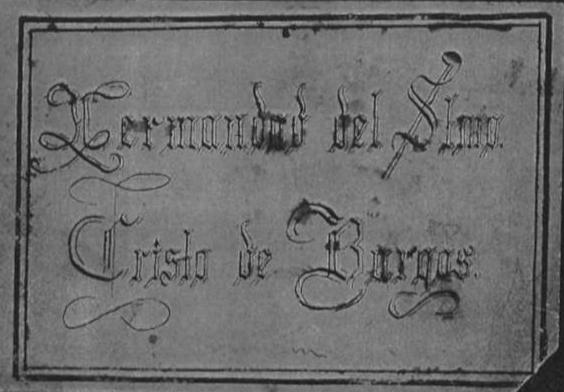 Hermandad del Slmo.
Cristo de Burgos.